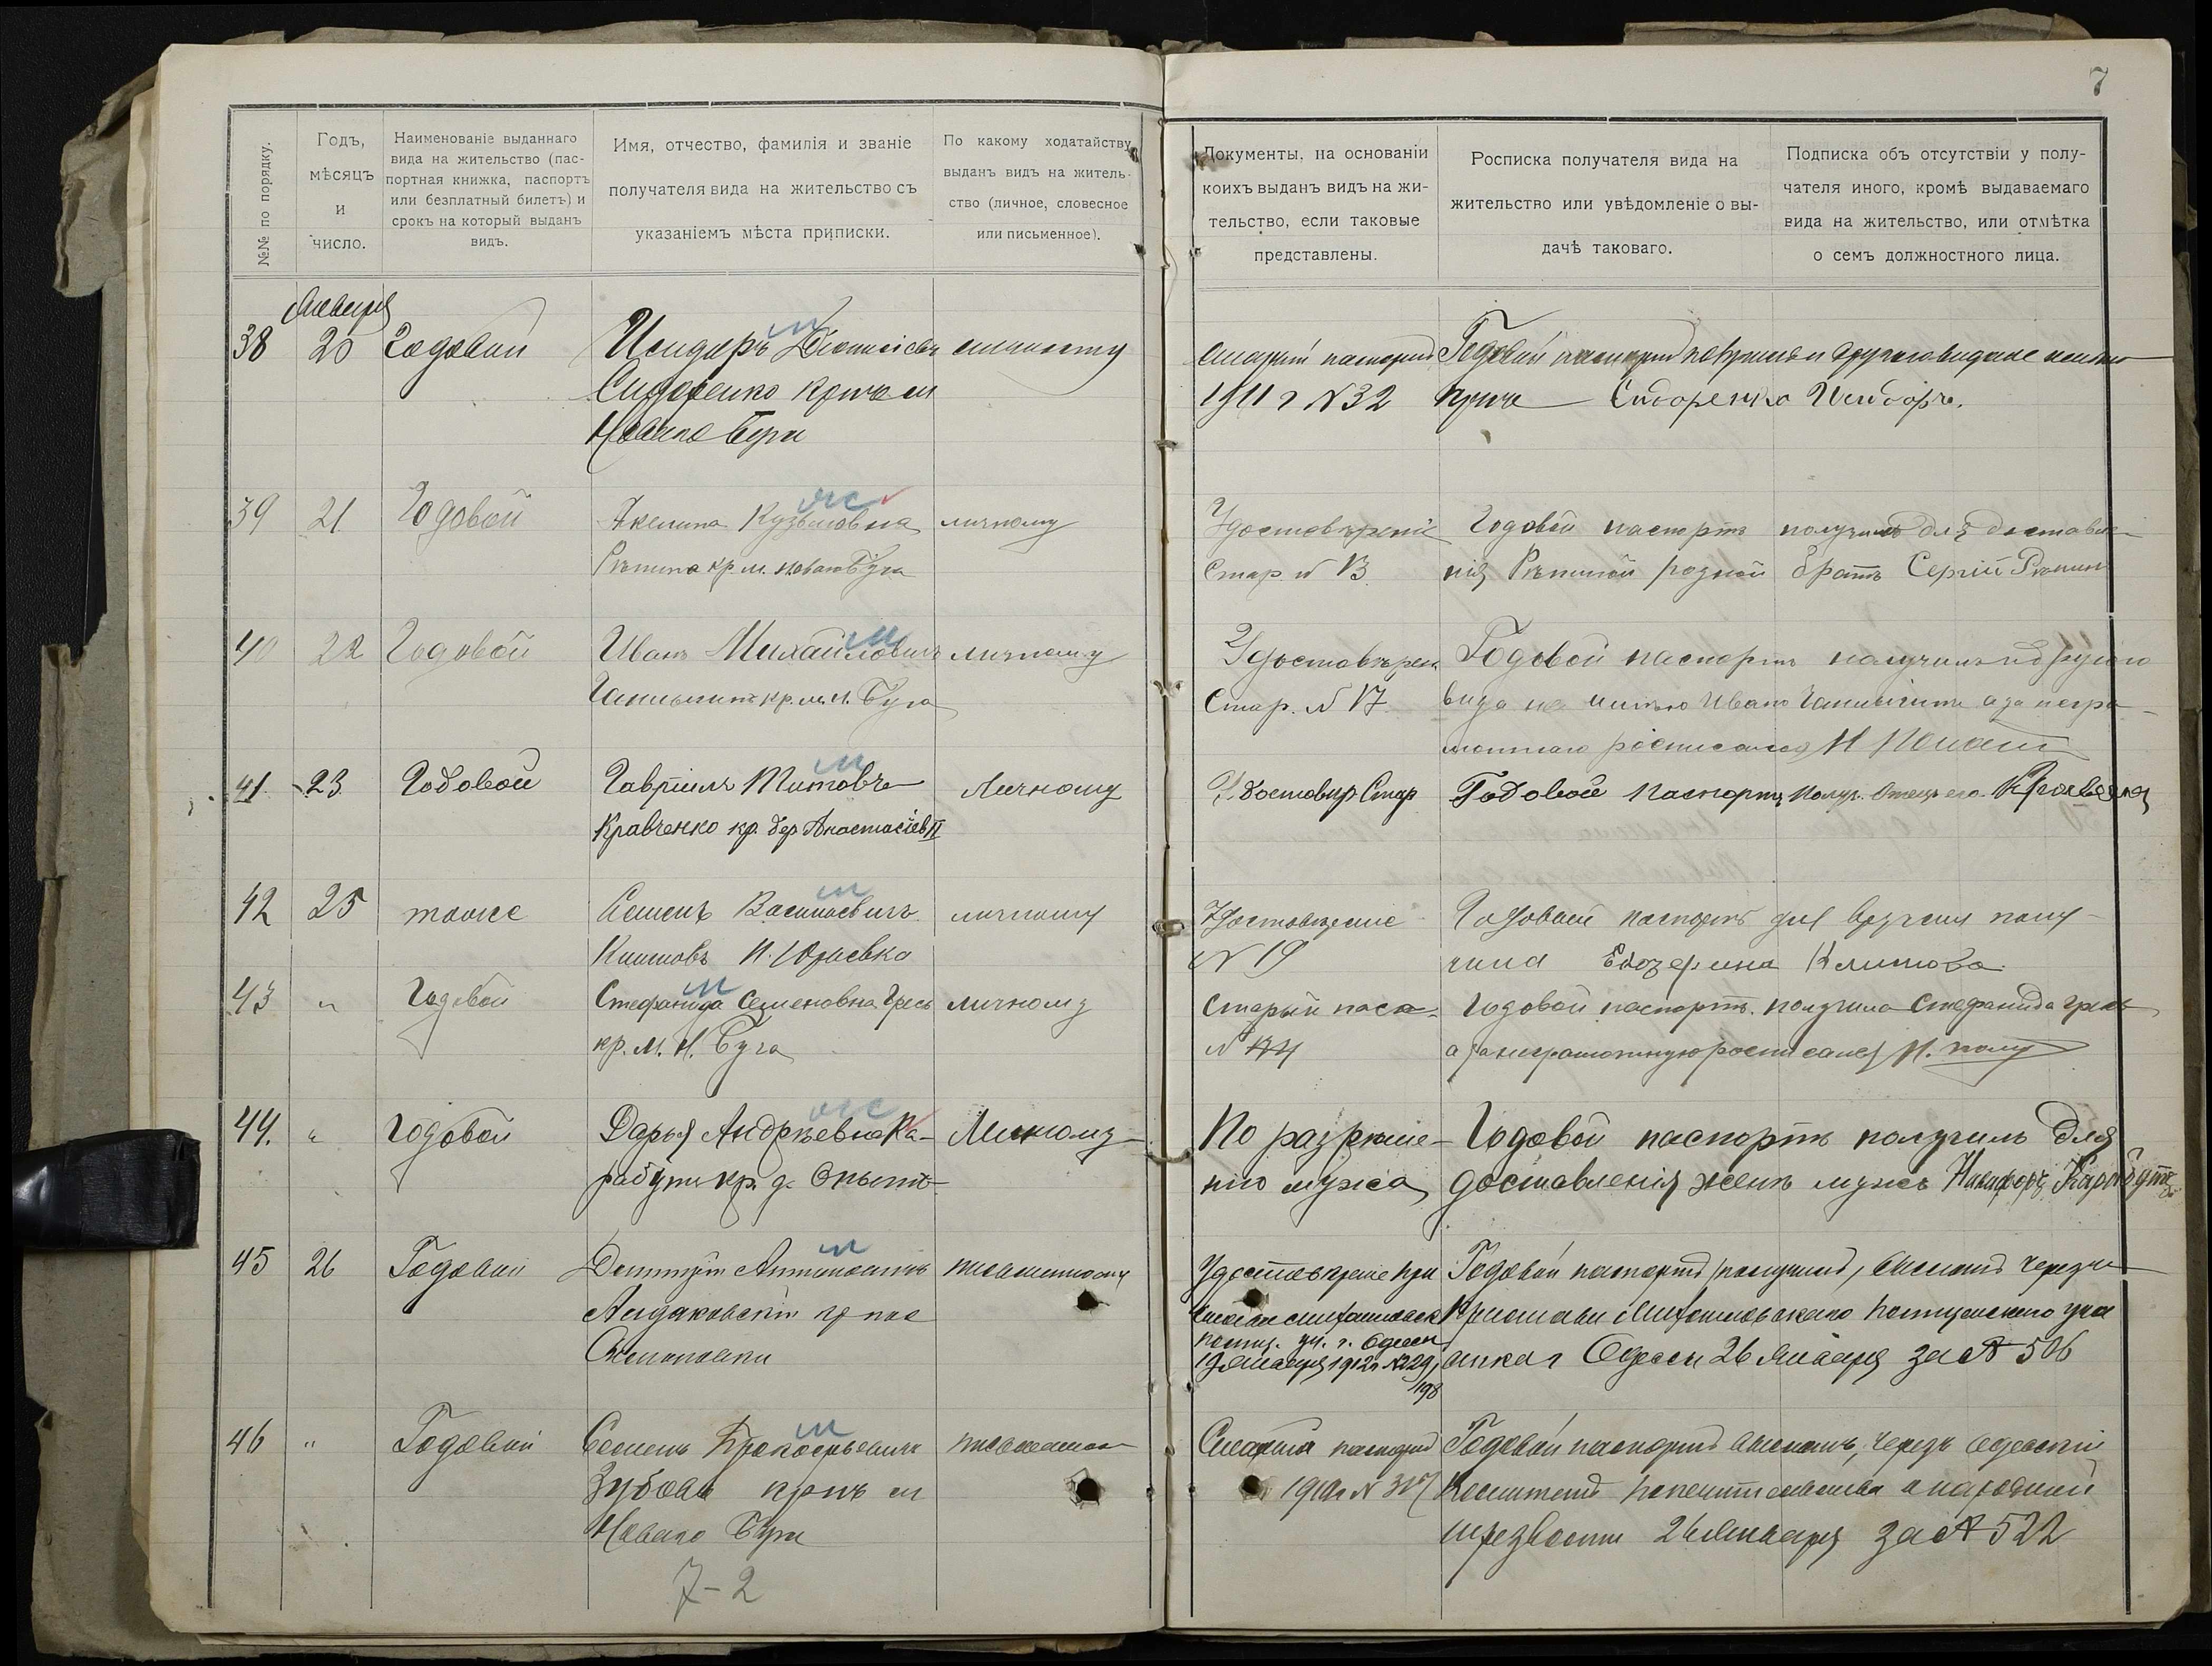 7
№№ по порядку.
Годъ,
мѣсяцъ
и
число.
Наименованіе выданнаго
вида на жительство (пас-
портная книжка, паспортъ
или безплатный билетъ) и
срокъ на который выданъ
видъ.
Имя, отчество, фамилія и званіе
получателя вида на жительство съ
указаніемъ мѣста приписки.
По какому ходатайству
выданъ видъ на житель-
ство (личное, словесное
или письменное).
Документы, на основаніи
коихъ выданъ видъ на жи-
тельство, если таковые
представлены.
Росписка получателя вида на
жительство или увѣдомленіе о вы-
дачѣ таковаго.
Подписка объ отсутствіи у полу-
чателя иного, кромѣ выдаваемаго
вида на жительство, или отмѣтка
о семъ должностного лица.
Января
м
38 20 Годовой Исидоръ Діонисіевъ личному
Сидоренко кр-нъ м
Новаго Буга
Старый паспортъ Годовой паспортъ получилъ и другого вида не имѣю
1911 г N 32 кр-нъ Сидоренко Исидоръ.
жс
39 21 Годовой Акелина Кузьмовна личному
Рѣпина кр. м. Новаго Буга
Удостовѣреніе Годовой паспортъ получилъ для доставле-
Стар. N 13 нія Рѣпиной родной братъ Сергій Рѣпинъ
м
40 22 Годовой Иванъ Михайловичъ личному
кр. м. Н. Буга
Удостовѣрен. Годовой паспортъ получилъ и другого
Стар. N 17 вида не имѣю Иванъ а за негра-
мотнаго росписался Н
м
41 23 Годовой Гавріилъ Титовъ Личному
Кравченко кр. дер. Анастасіев II
Удостовѣр Стар Годовой паспортъ получ. Отецъ его
м
42 25 тоже Семенъ Василіевичъ личному
Климовъ Н. Юрьевка
Удостовѣреніе Годовой паспортъ для врученія полу-
N 19 чила Климова
м
43 " Годовой Стефанида Семеновна Гресь личному
кр. м. Н. Буга
Старый пасп. Годовой паспортъ получила Стефанида Гресь
N 174 а за неграмотную росписался Н.
жс
44. " Годовой Дарья Андрѣевна Ка- Личному
рабутъ кр. д.
По разрѣше- Годовой паспортъ получилъ для
нію мужа доставленія женѣ мужъ Никифоръ
м
45 26 Годовой Дмитрій письменному
Удостовѣреніе при- Годовой паспортъ (получилъ) высланъ черезъ
става Михайловск пристава Михайловскаго полицейскаго уча
полиц. уч. г. Одессы
19 Января 1912г. N 229/198 стка г Одессы 26 Января за № 506
м
46 " Годовой Семенъ Прокофьевичъ письменно
Зубовъ кр-нъ м
Новаго Буга
Старый паспортъ Годовой паспортъ высланъ, черезъ Одесскій
N 307 Комитетъ попечительства о народной
трезвости 26 Января за № 522
7-2